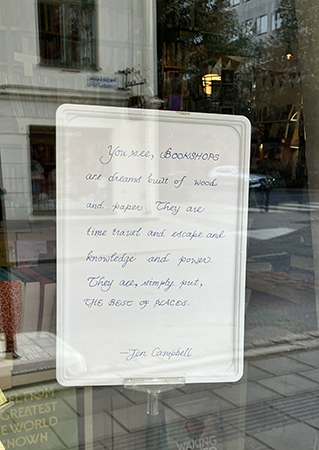 You see, BOOKSHOPS
are dreams built of wood
and paper. They are
time travel and escape and
knowledge and power.
They are, simply put,
THE BEST OF PLACES.
—Jen Campbell
FROM
GREATEST
E WORLD
NOWN
WAKING